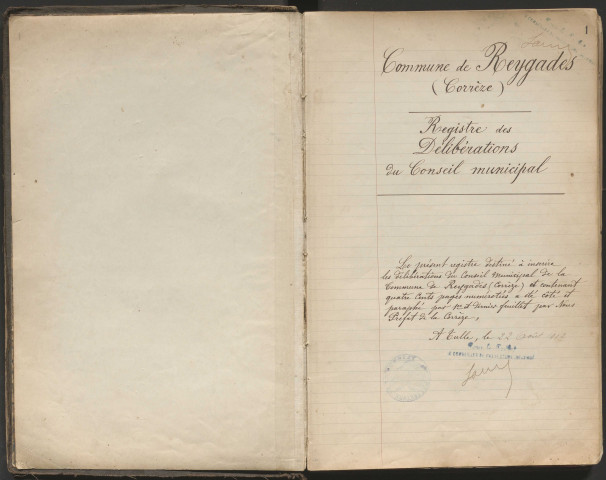 1
Commune de Reygades
(Corrèze)
Registre des
Délibérations
du Conseil municipal
Le présent registre destiné à inscrire
les délibérations du Conseil Municipal de la
Commune de Reygades (Corrèze) et contenant
quatre cents pages numérotées a été coté et
paraphé par 1er et dernier feuillet par Nous
Préfet de la Corrèze,
A Tulle, le 22